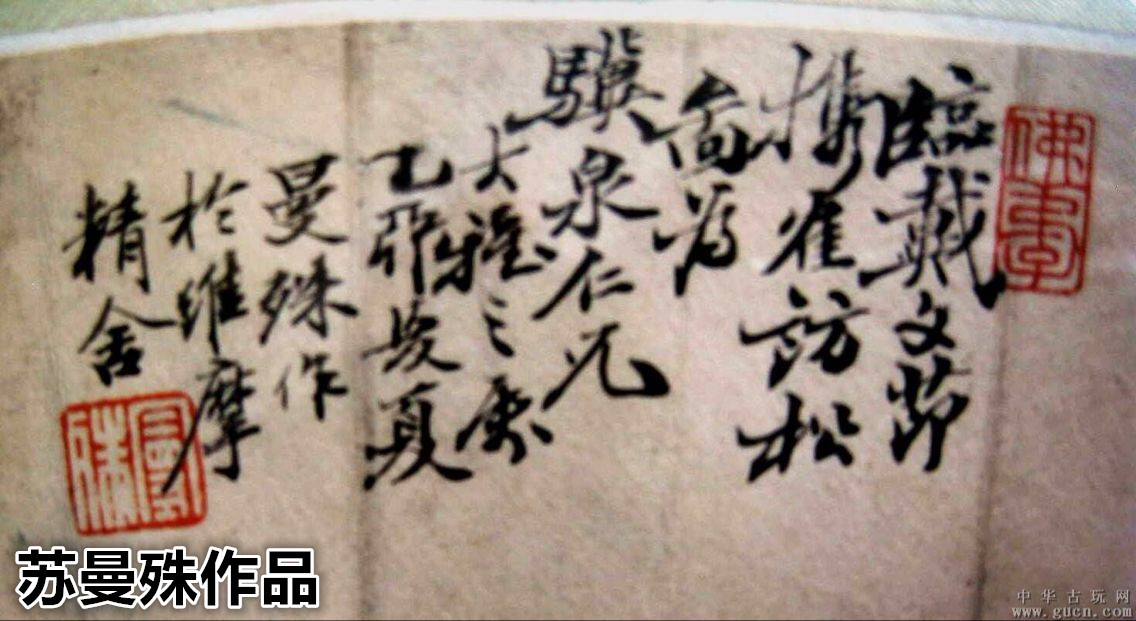 臨戴文節
携隺訪松
啚為
驥泉仁兄
大雅之属
乙夘長夏
曼殊作
於維摩
精舍
曼殊
苏曼殊作品
中华古玩网
www.gucn.com